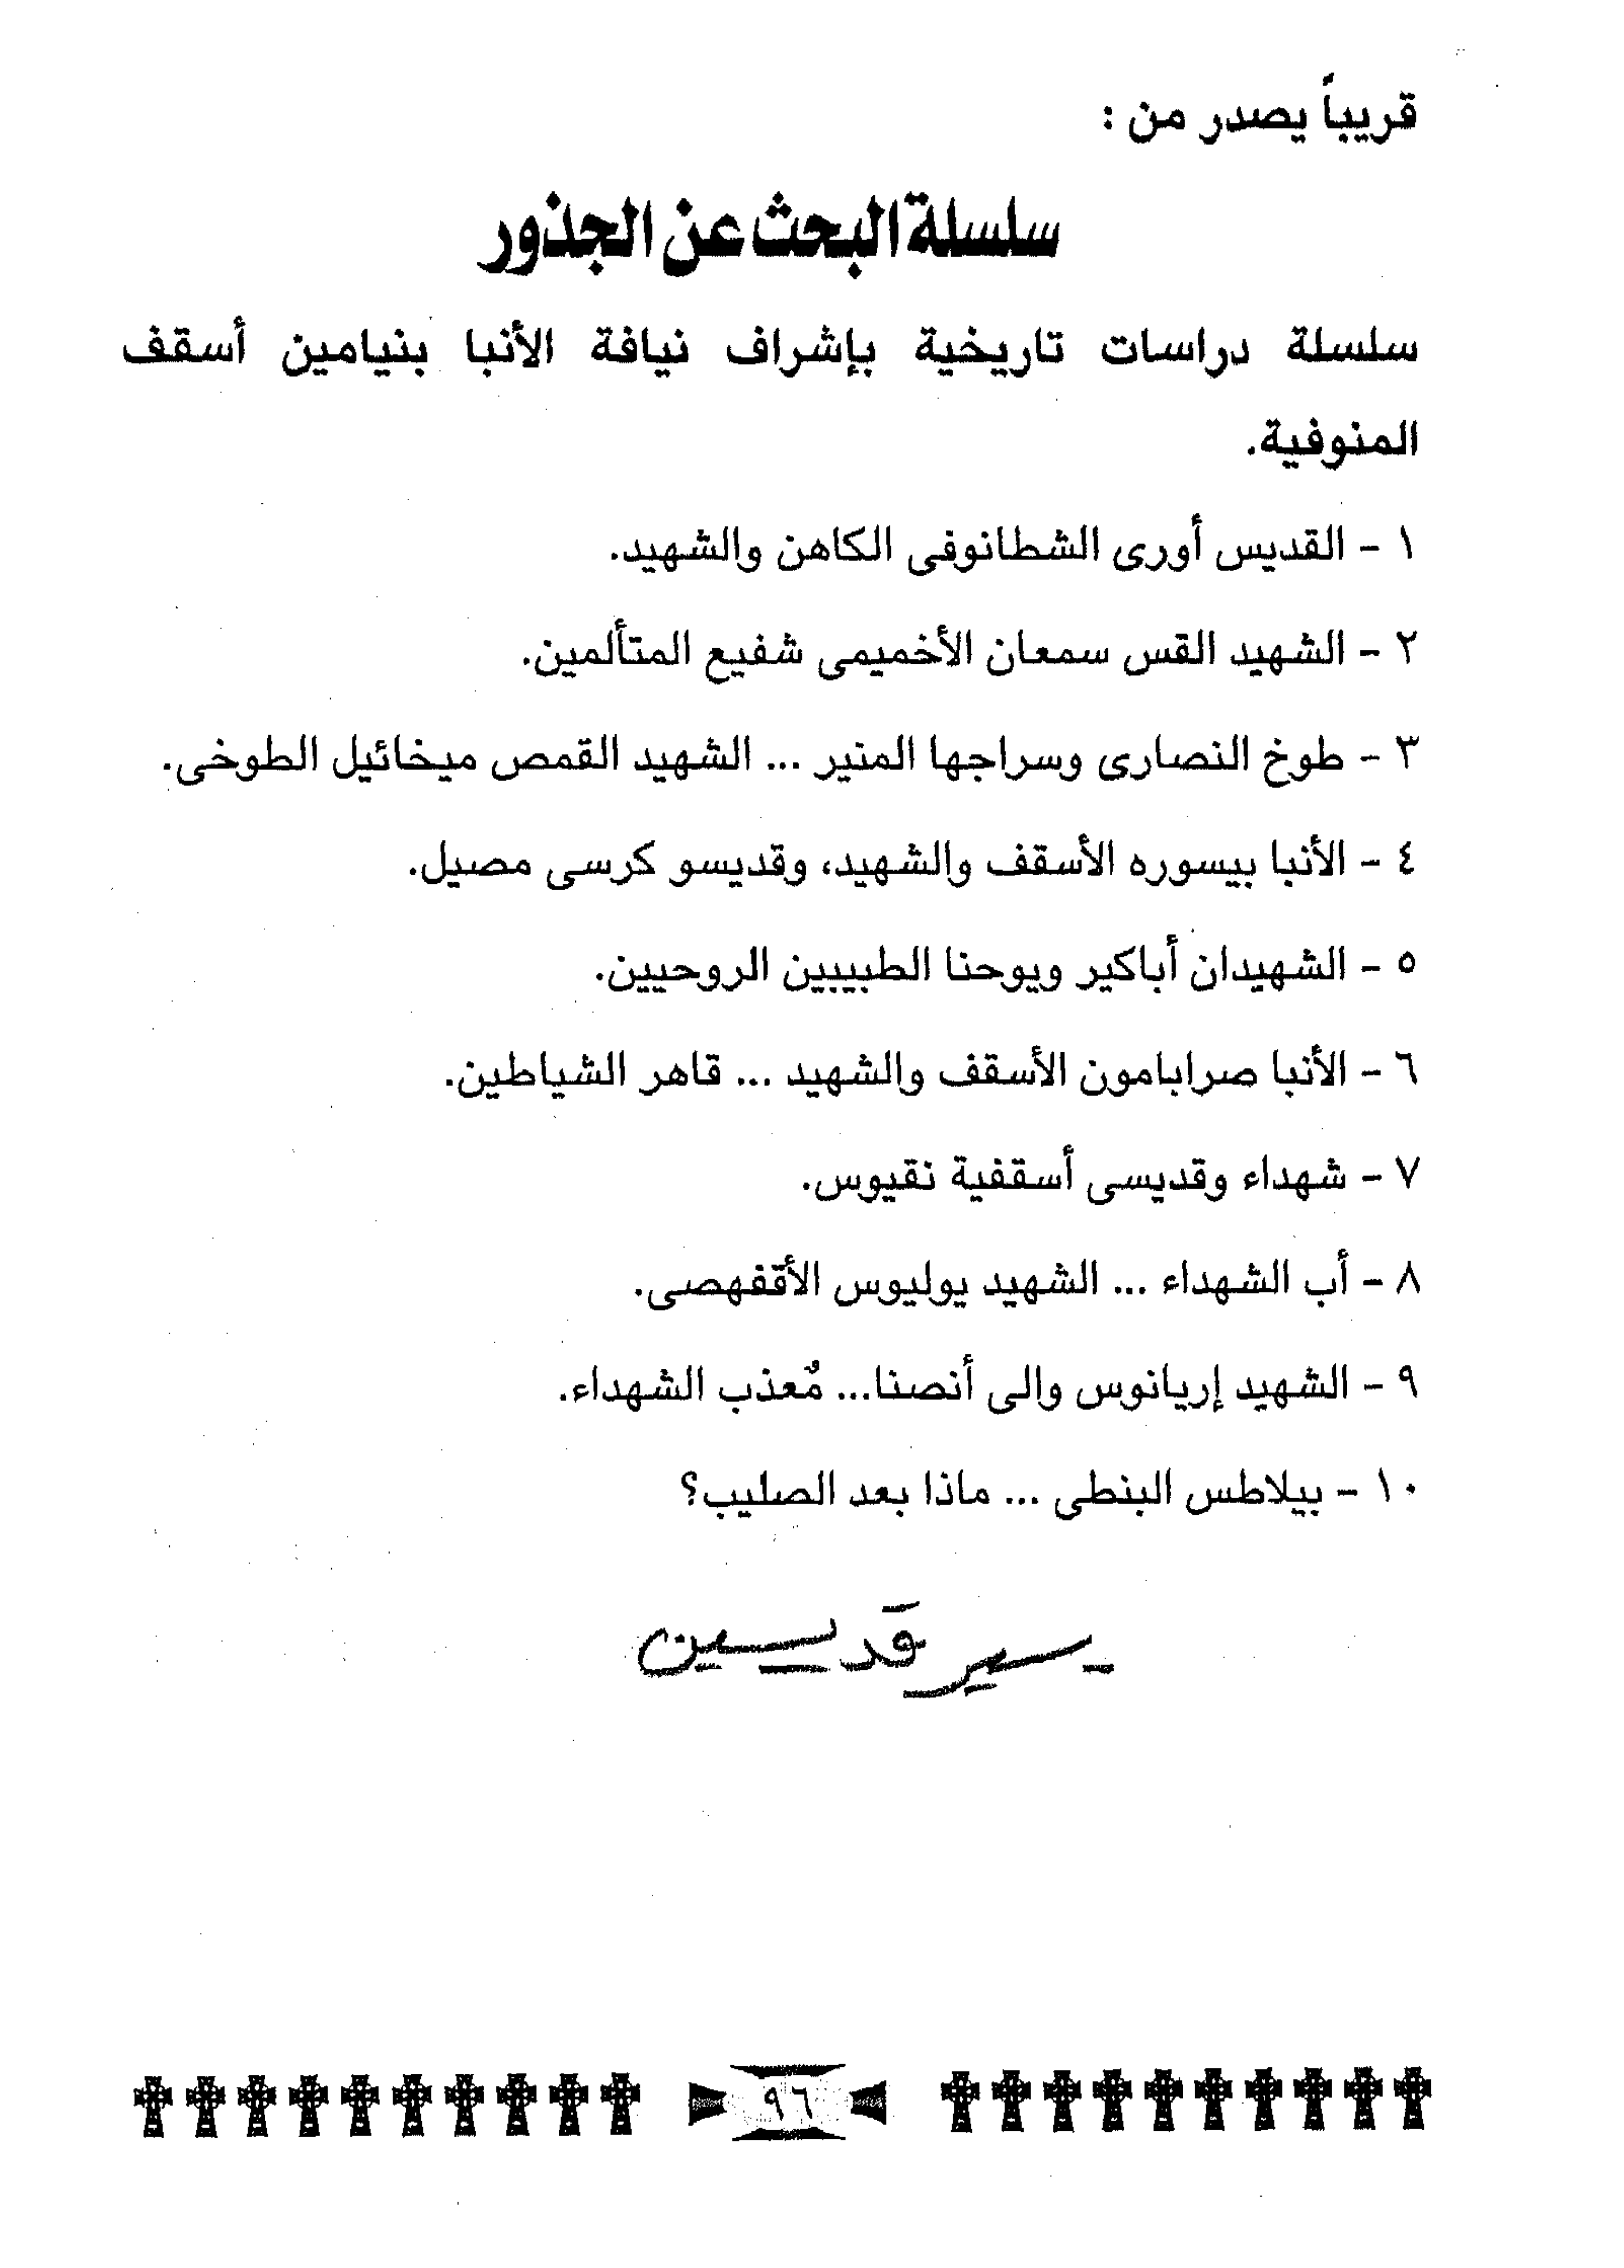 قريباً يصدر من :
سلسلة البحث عن الجذور
سلسلة دراسات تاريخية بإشراف نيافة الأنبا بنيامين أسقف
المنوفية.
١ - القديس أورى الشطانوفى الكاهن والشهيد.
٢ - الشهيد القس سمعان الأخميمى شفيع المتألمين.
٣ - طوخ النصارى وسراجها المنير ... الشهيد القمص ميخائيل الطوخى.
٤ - الأنبا بيسوره الأسقف والشهيد، وقديسو كرسى مصيل.
٥ - الشهيدان أباكير ويوحنا الطبيبين الروحيين.
٦ - الأنبا صرابامون الأسقف والشهيد ... قاهر الشياطين.
٧ - شهداء وقديسى أسقفية نقيوس.
٨ - أب الشهداء ... الشهيد يوليوس الأقفهصى.
٩ - الشهيد إريانوس والى أنصنا... مٌعذب الشهداء.
١٠ - بيلاطس البنطى ... ماذا بعد الصليب؟
- سير قديسين
٩٦